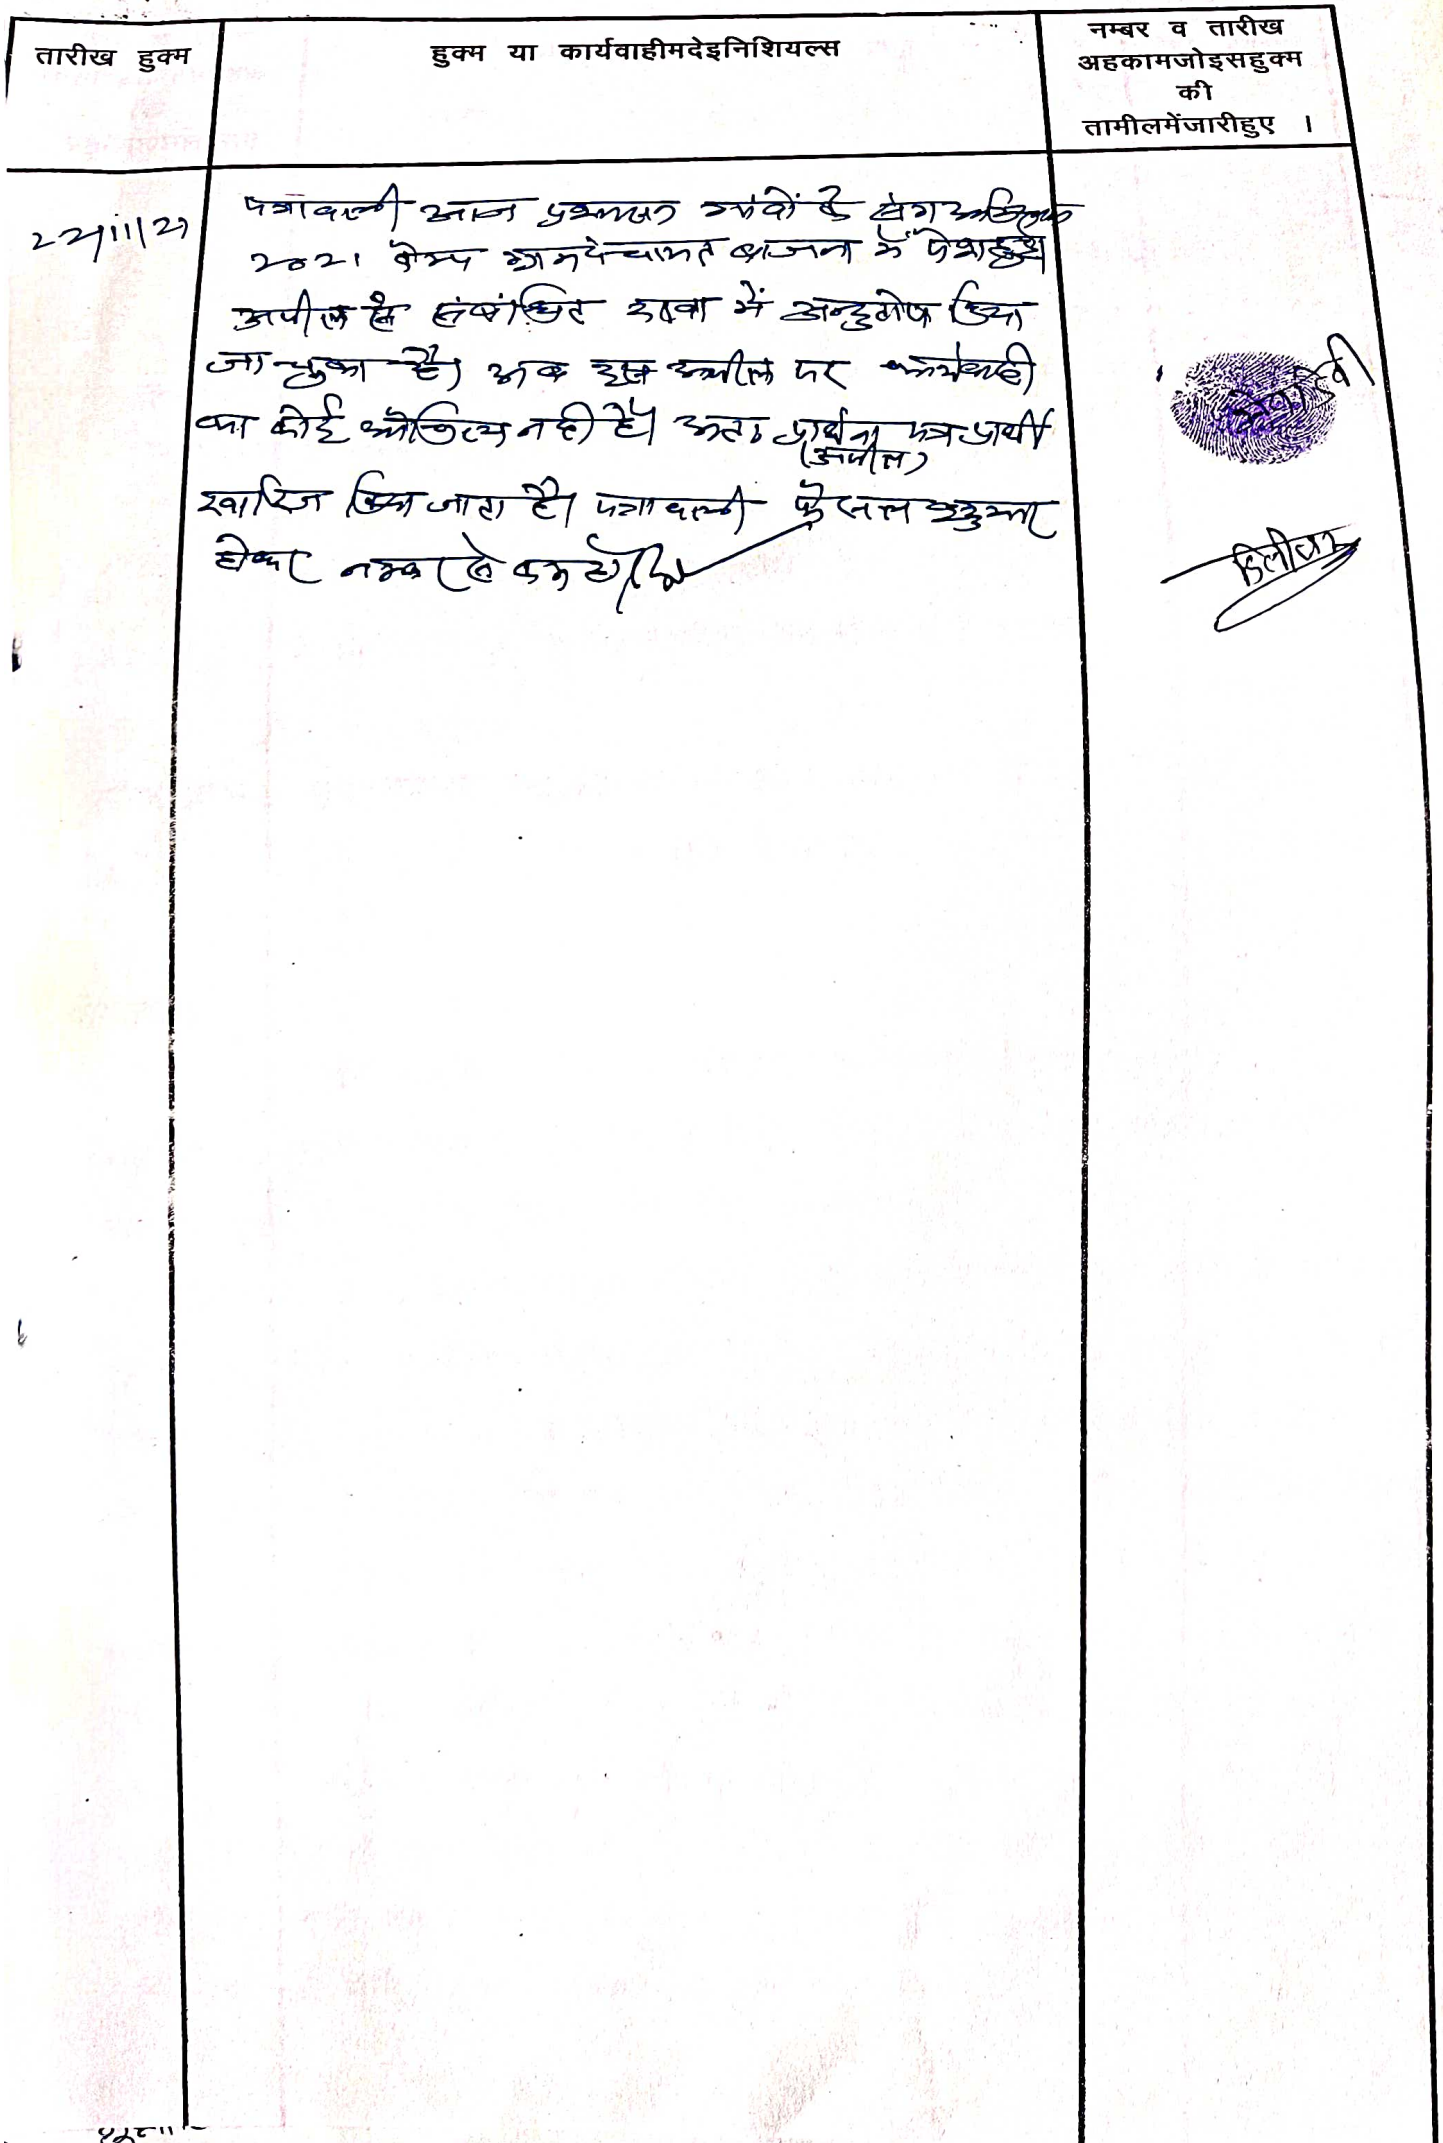 तारीख हुक्म
हुक्म या कार्यवाहीमदेइनिशियल्स
नम्बर व तारीख
अहकामजोइसहुक्म
की
तामीलमेंजारीहुए ।
22/11/21
पत्रावली आज प्रशासन गांवों के संग अभियान
2021 कैम्प ग्राम पंचायत बाजना में पेश हुई
अपील से संबंधित रकबा में अनुतोष दिया
जा चुका है। अब इस अपील पर कार्यवाही
का कोई औचित्य नही है। अतः प्रार्थना पत्र प्रार्थी
(अपील)
खारिज किया जाता है। पत्रावली फैसल शुमार
होकर नम्बर से कम हो।
देवी
दिलीप